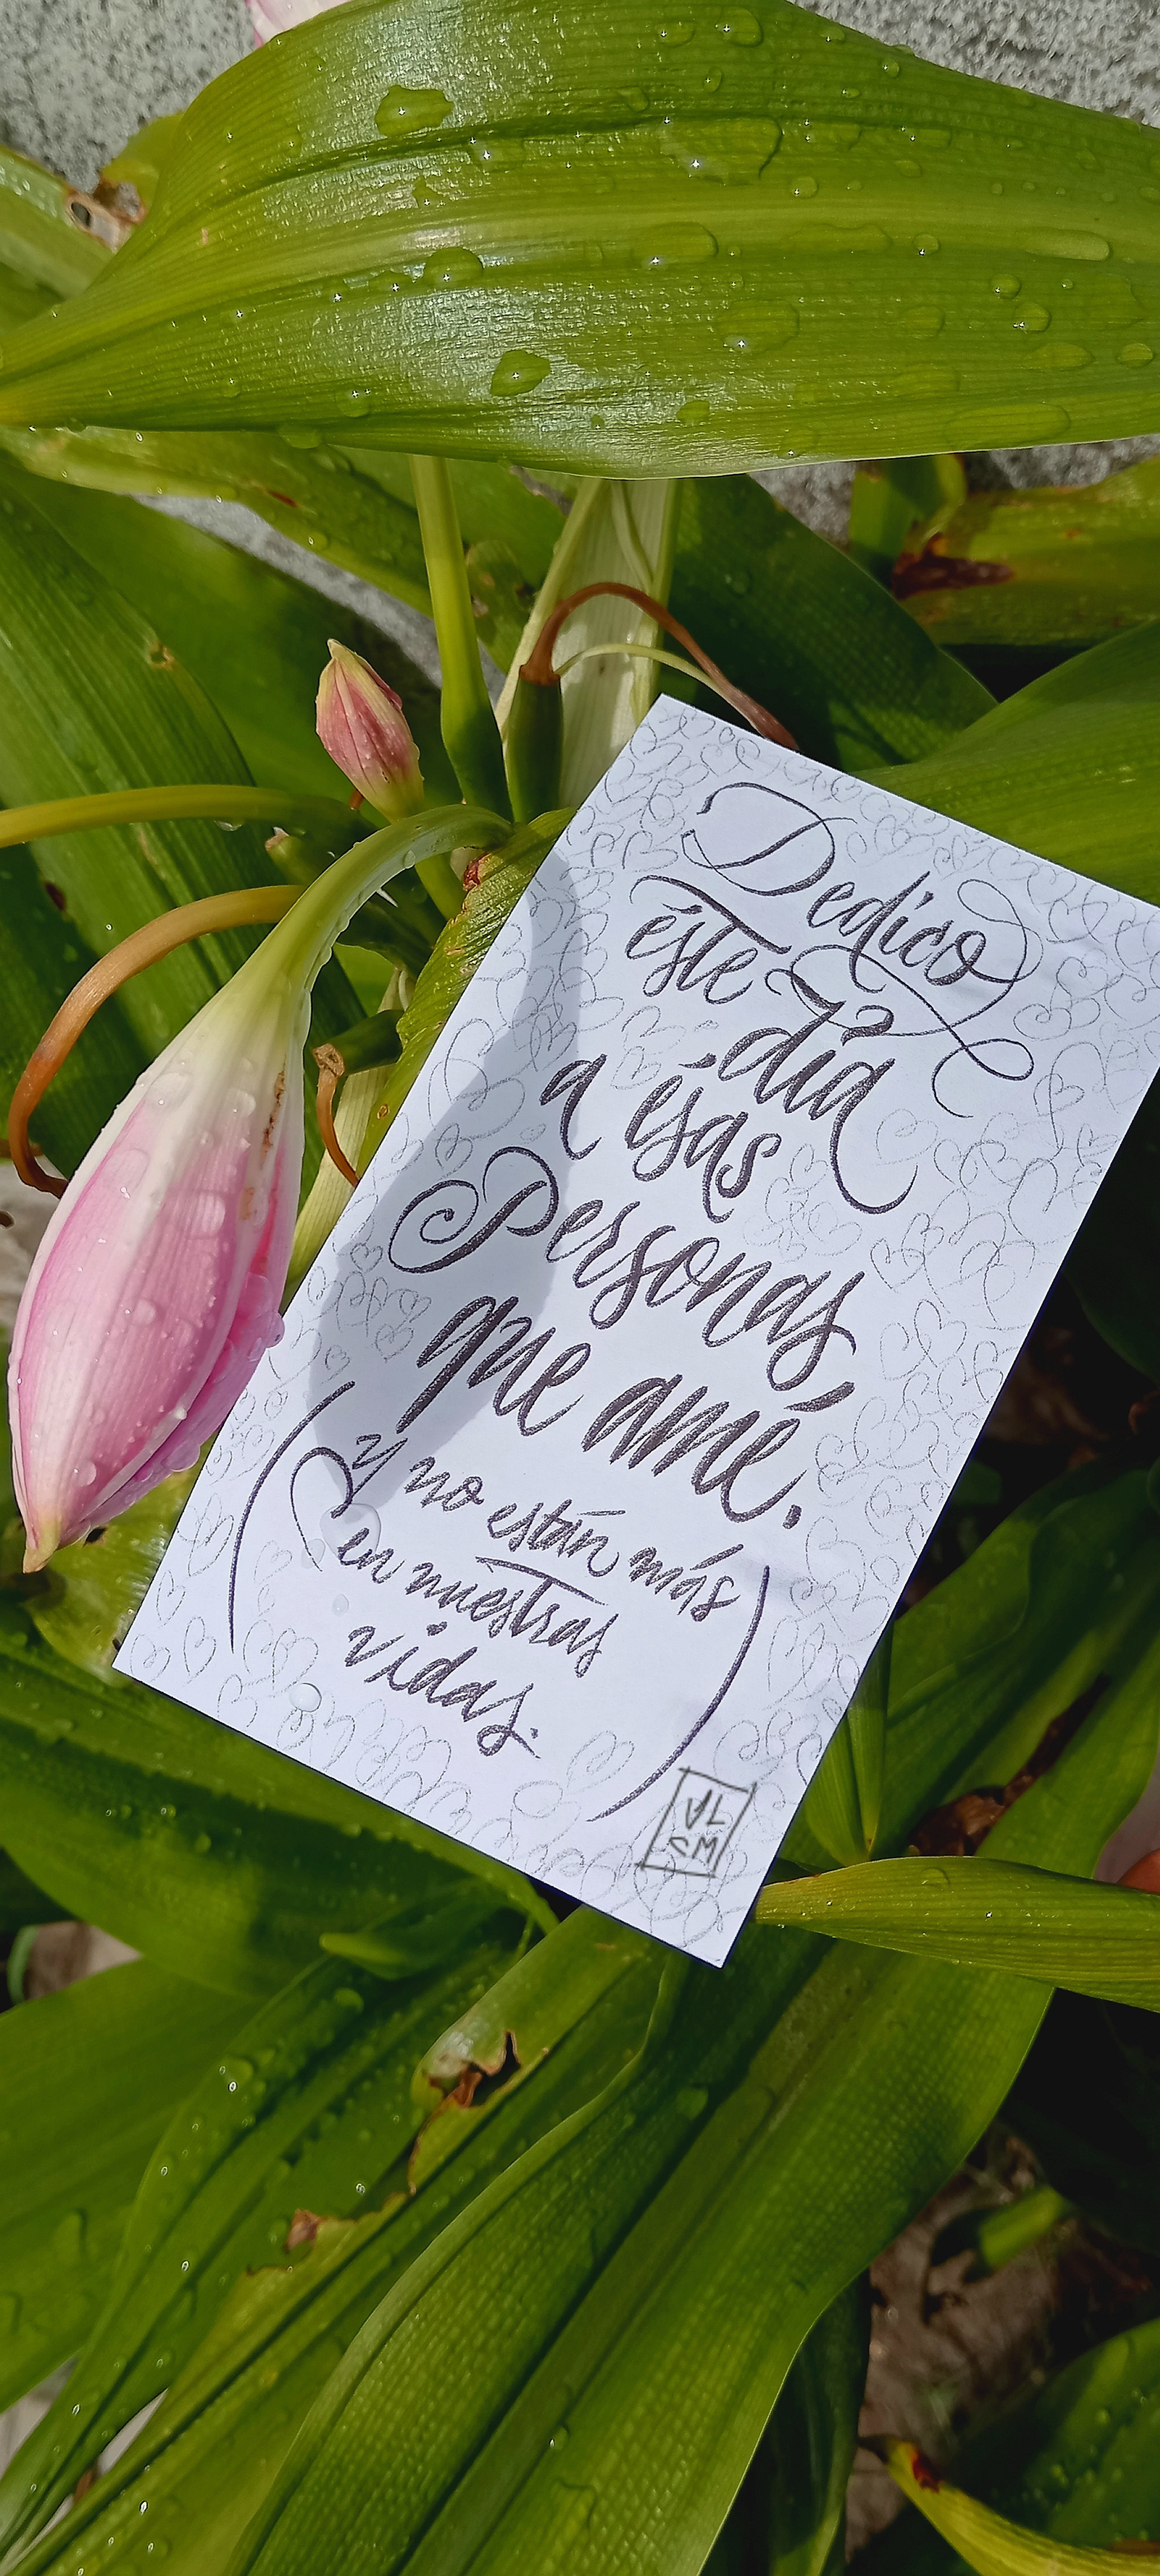 Dedico
éste día
a ésas
Personas
que amé.
(y no están más
en nuestras
vidas.)
VL
SM